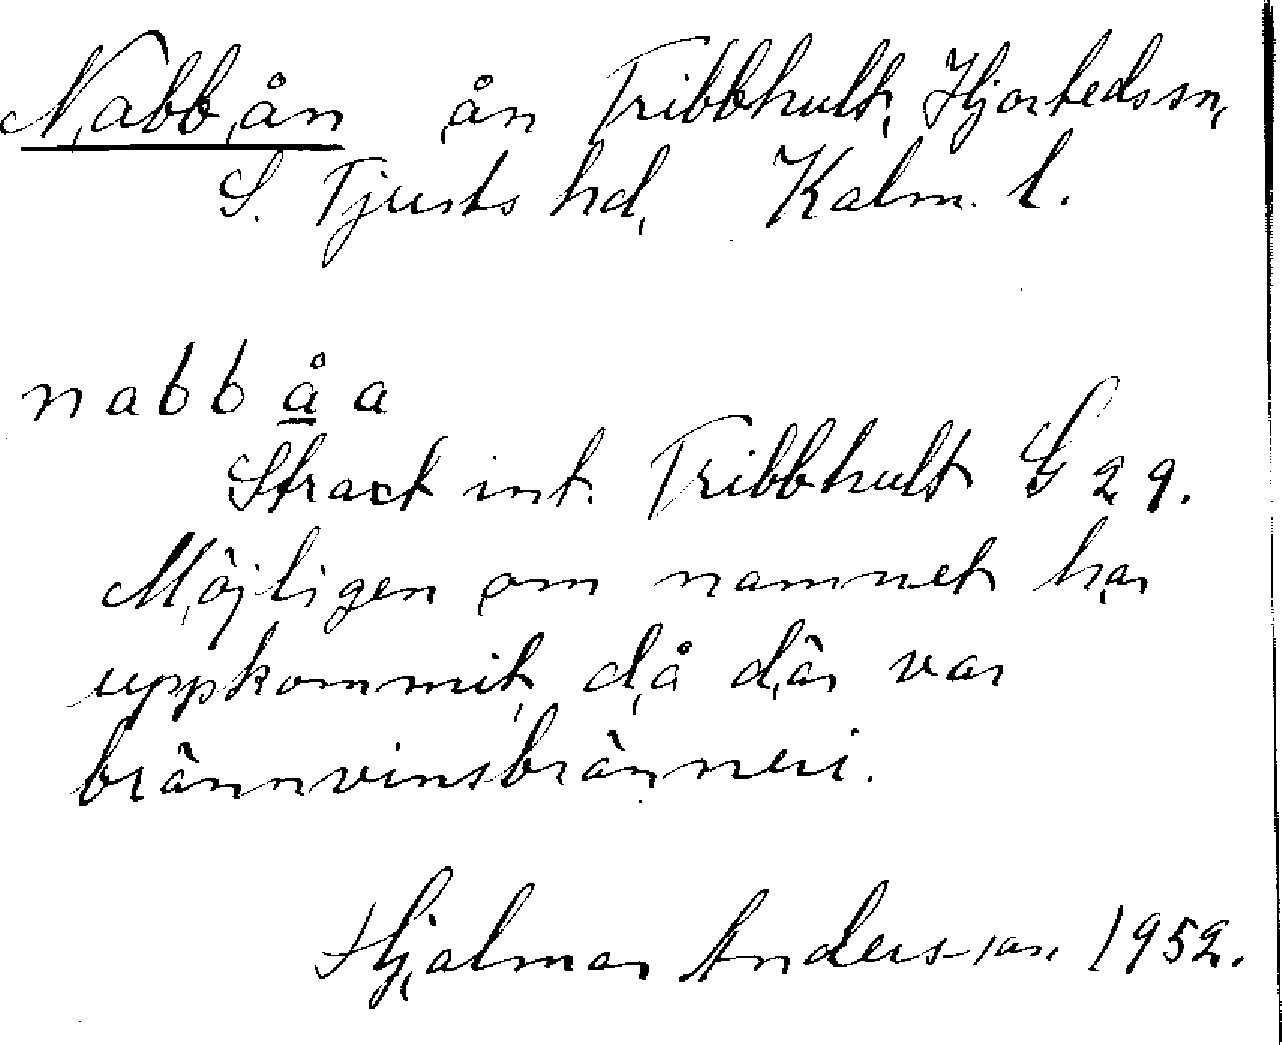 Nabbån ån Tribbhult, Hjorteds sn,
S. Tjusts hd, Kalm. l.
nabbåa
Strax int. Tribbhult G 29.
Möjligen om namnet har
uppkommit, då där var
brännvinsbränneri.
Hjalmar Andersson 1952.